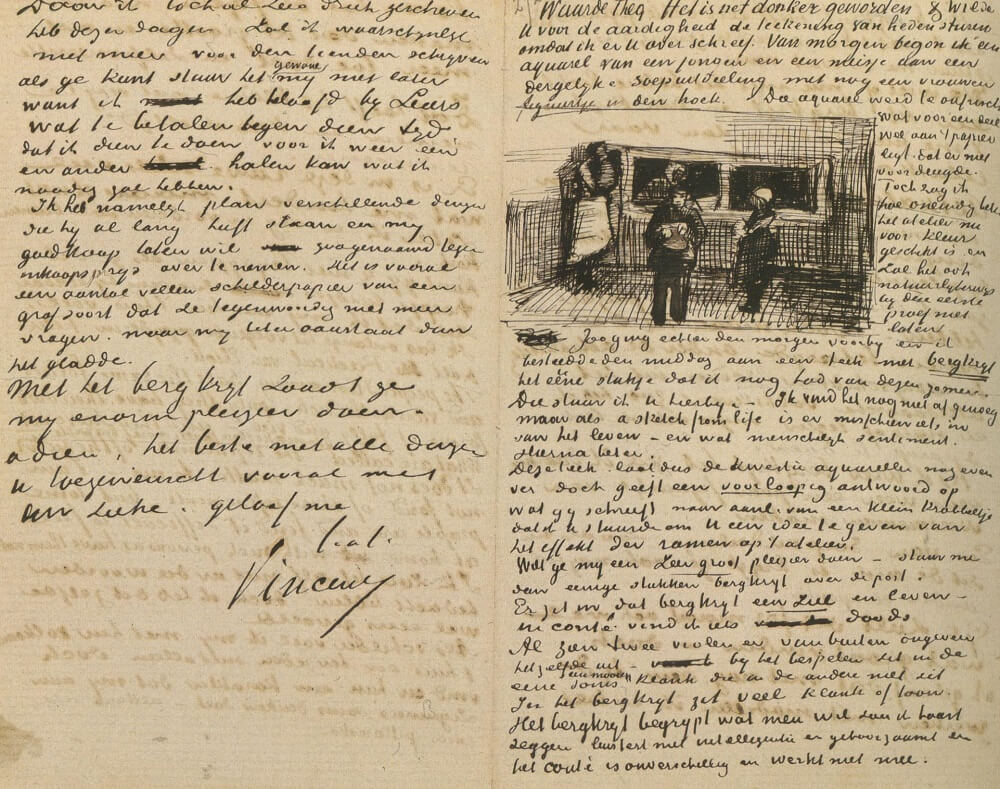 Door ik toch al zeer druk geschreven
heb dezer dagen zal ik waarschynlyk
niet meer voor den tienden schryven
als ge kunt stuur het gewone my niet later
want ik heb beloofd by Leurs
wat te betalen tegen dien tyd
dat ik dien te doen voor ik weer een
en ander halen kan wat ik
noodig zal hebben.
Ik heb namelyk plan verschillende dingen
die hy al lang heeft staan en my
goedkoop laten wil zoogenaamd tegen
inkoopsprys over te nemen. Het is vooral
een aantal vellen schilderpapier van een
grof soort dat ze tegenwoordig niet meer
vragen. maar my beter aanstaat dan
het gladde.
Met het bergkryt zoudt ge
my enorm pleizier doen.
adieu, het beste met alle dingen
U toegewenscht vooral met
Uw zieke. geloof me
t.at.
Vincent
Waarde Theo Het is net donker geworden & wilde
U voor de aardigheid de teekening van heden sturen
omdat ik er U over schreef. Van morgen begon ik een
aquarel van een jongen en een meisje aan een
dergelyke soepuitdeeling met nog een vrouwen
figuurtje in den hoek. Die aquarel werd te onfrisch
wat voor een deel
wel aan 't papier
ligt. dat er niet
voor deugde.
Toch zag ik
hoe oneindig beter
het atelier nu
voor kleur
geschikt is en
zal het ook
natuurlyk
by deze eerste
proef niet
laten
Zoo ging echter den morgen voorby en ik
besteedde den middag aan een teek met bergkryt
het eene stukje dat ik nog had van dezen zomer.
Die stuur ik U hierby. – Ik vind het nog niet af genoeg
maar als a sketch from life is er misschien iets in
van het leven – en wat menschelyk sentiment.
Hierna beter.
Deze teek. laat dus de kwestie aquarellen nog even
ver doch geeft een voorloopig antwoord op
wat gy schreeft naar aanl. van een klein krabbeltje
dat ik U stuurde om U een idee te geven van
het effekt der ramen op 't atelier.
Wilt ge my een zeer groot pleizier doen – stuur me
dan eenige stukken bergkryt over de post.
Er zit in dat bergkryt een ziel en leven –
in conté vind ik iets doods
Al zien twee violen er van buiten ongeveer
hetzelfde uit – by het bespelen zit in de
eene soms een mooien klank die in de andere niet zit
In het bergkryt zit veel klank of toon.
Het bergkryt begrypt wat men wil zou ik haast
zeggen luistert met intelligentie en gehoorzaamt en
het conté is onverschillig en werkt niet mee.